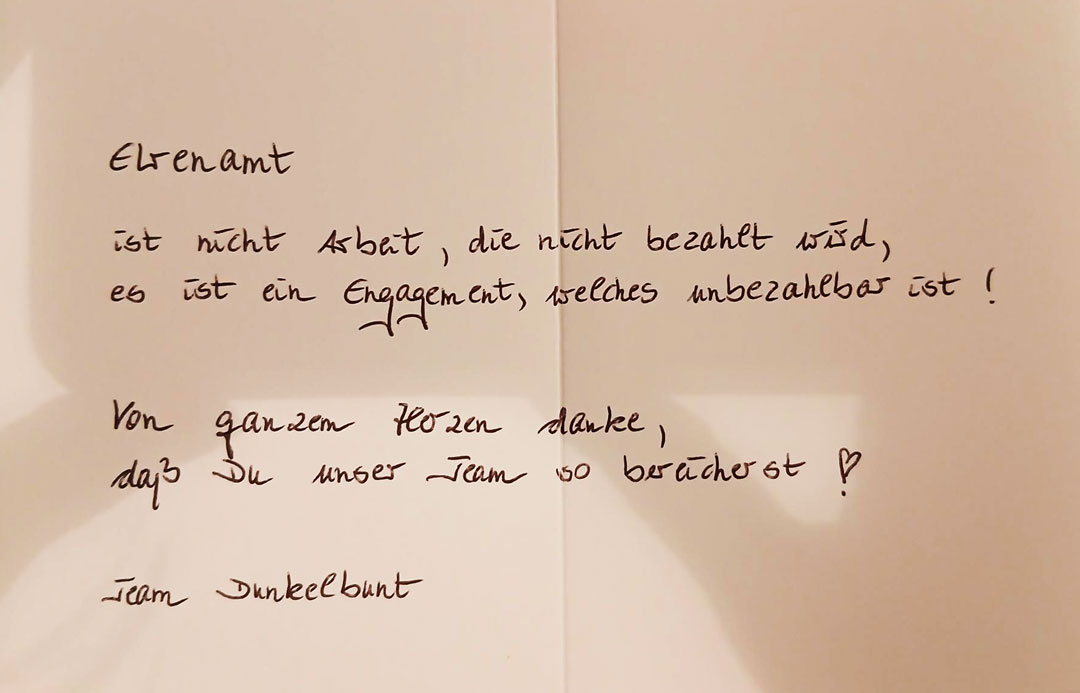 Ehrenamt
ist nicht Arbeit, die nicht bezahlt wird,
es ist ein Engagement, welches unbezahlbar ist !
Von ganzem Herzen danke,
daß Du unser Team so bereicherst !
Team Dunkelbunt